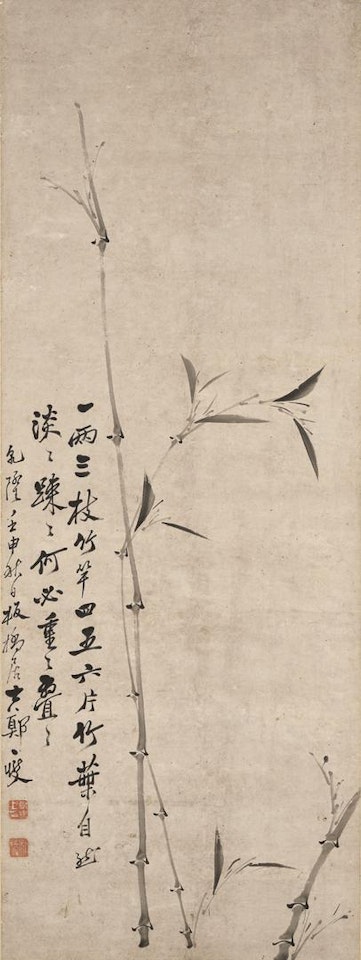 一兩三枝竹竿四五六片竹葉自然
淡〻踈〻何必重〻疊〻
乾隆壬申秋日板橋居士鄭燮